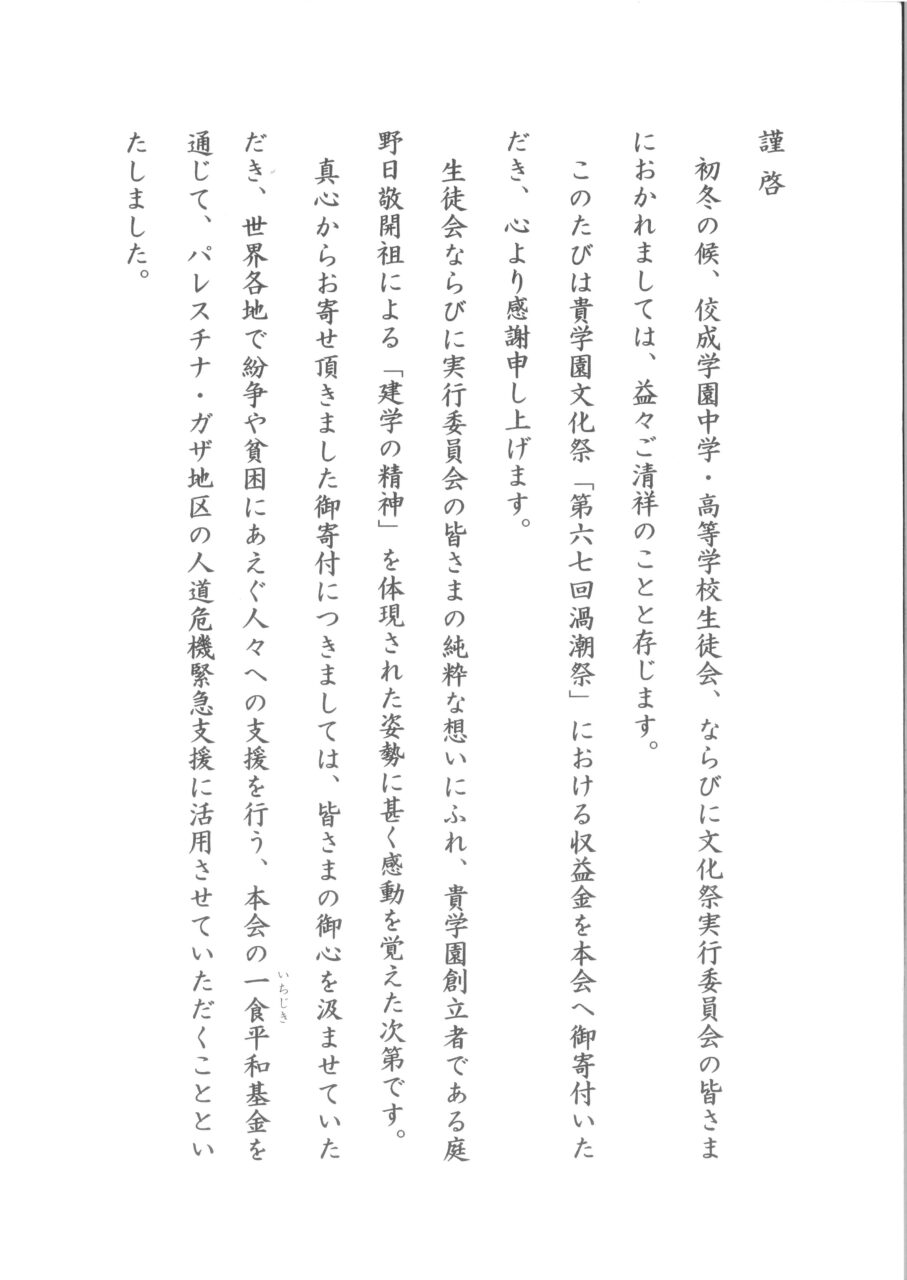 謹啓
初冬の候、佼成学園中学・高等学校生徒会、ならびに文化祭実行委員会の皆さま
におかれましては、益々ご清祥のことと存じます。
このたびは貴学園文化祭「第六七回渦潮祭」における収益金を本会へ御寄付いた
だき、心より感謝申し上げます。
生徒会ならびに実行委員会の皆さまの純粋な想いにふれ、貴学園創立者である庭
野日敬開祖による「建学の精神」を体現された姿勢に甚く感動を覚えた次第です。
真心からお寄せ頂きました御寄付につきましては、皆さまの御心を汲ませていた
だき、世界各地で紛争や貧困にあえぐ人々への支援を行う、本会の一食平和基金を
いちじき
通じて、パレスチナ・ガザ地区の人道危機緊急支援に活用させていただくこととい
たしました。